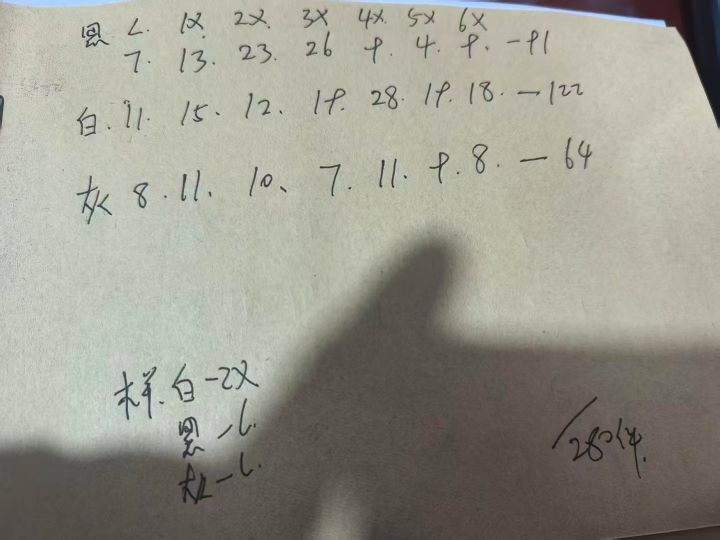 黑 L. 1X. 2X. 3X 4X. 5X 6X
7. 13. 23. 26 9. 4. 9. — 91
白. 11. 15. 12. 19. 28. 19. 18. — 122
灰 8. 11. 10、 7. 11. 9. 8. — 64
样. 白 - 2X
黑 - L.
灰 - L.
280件.